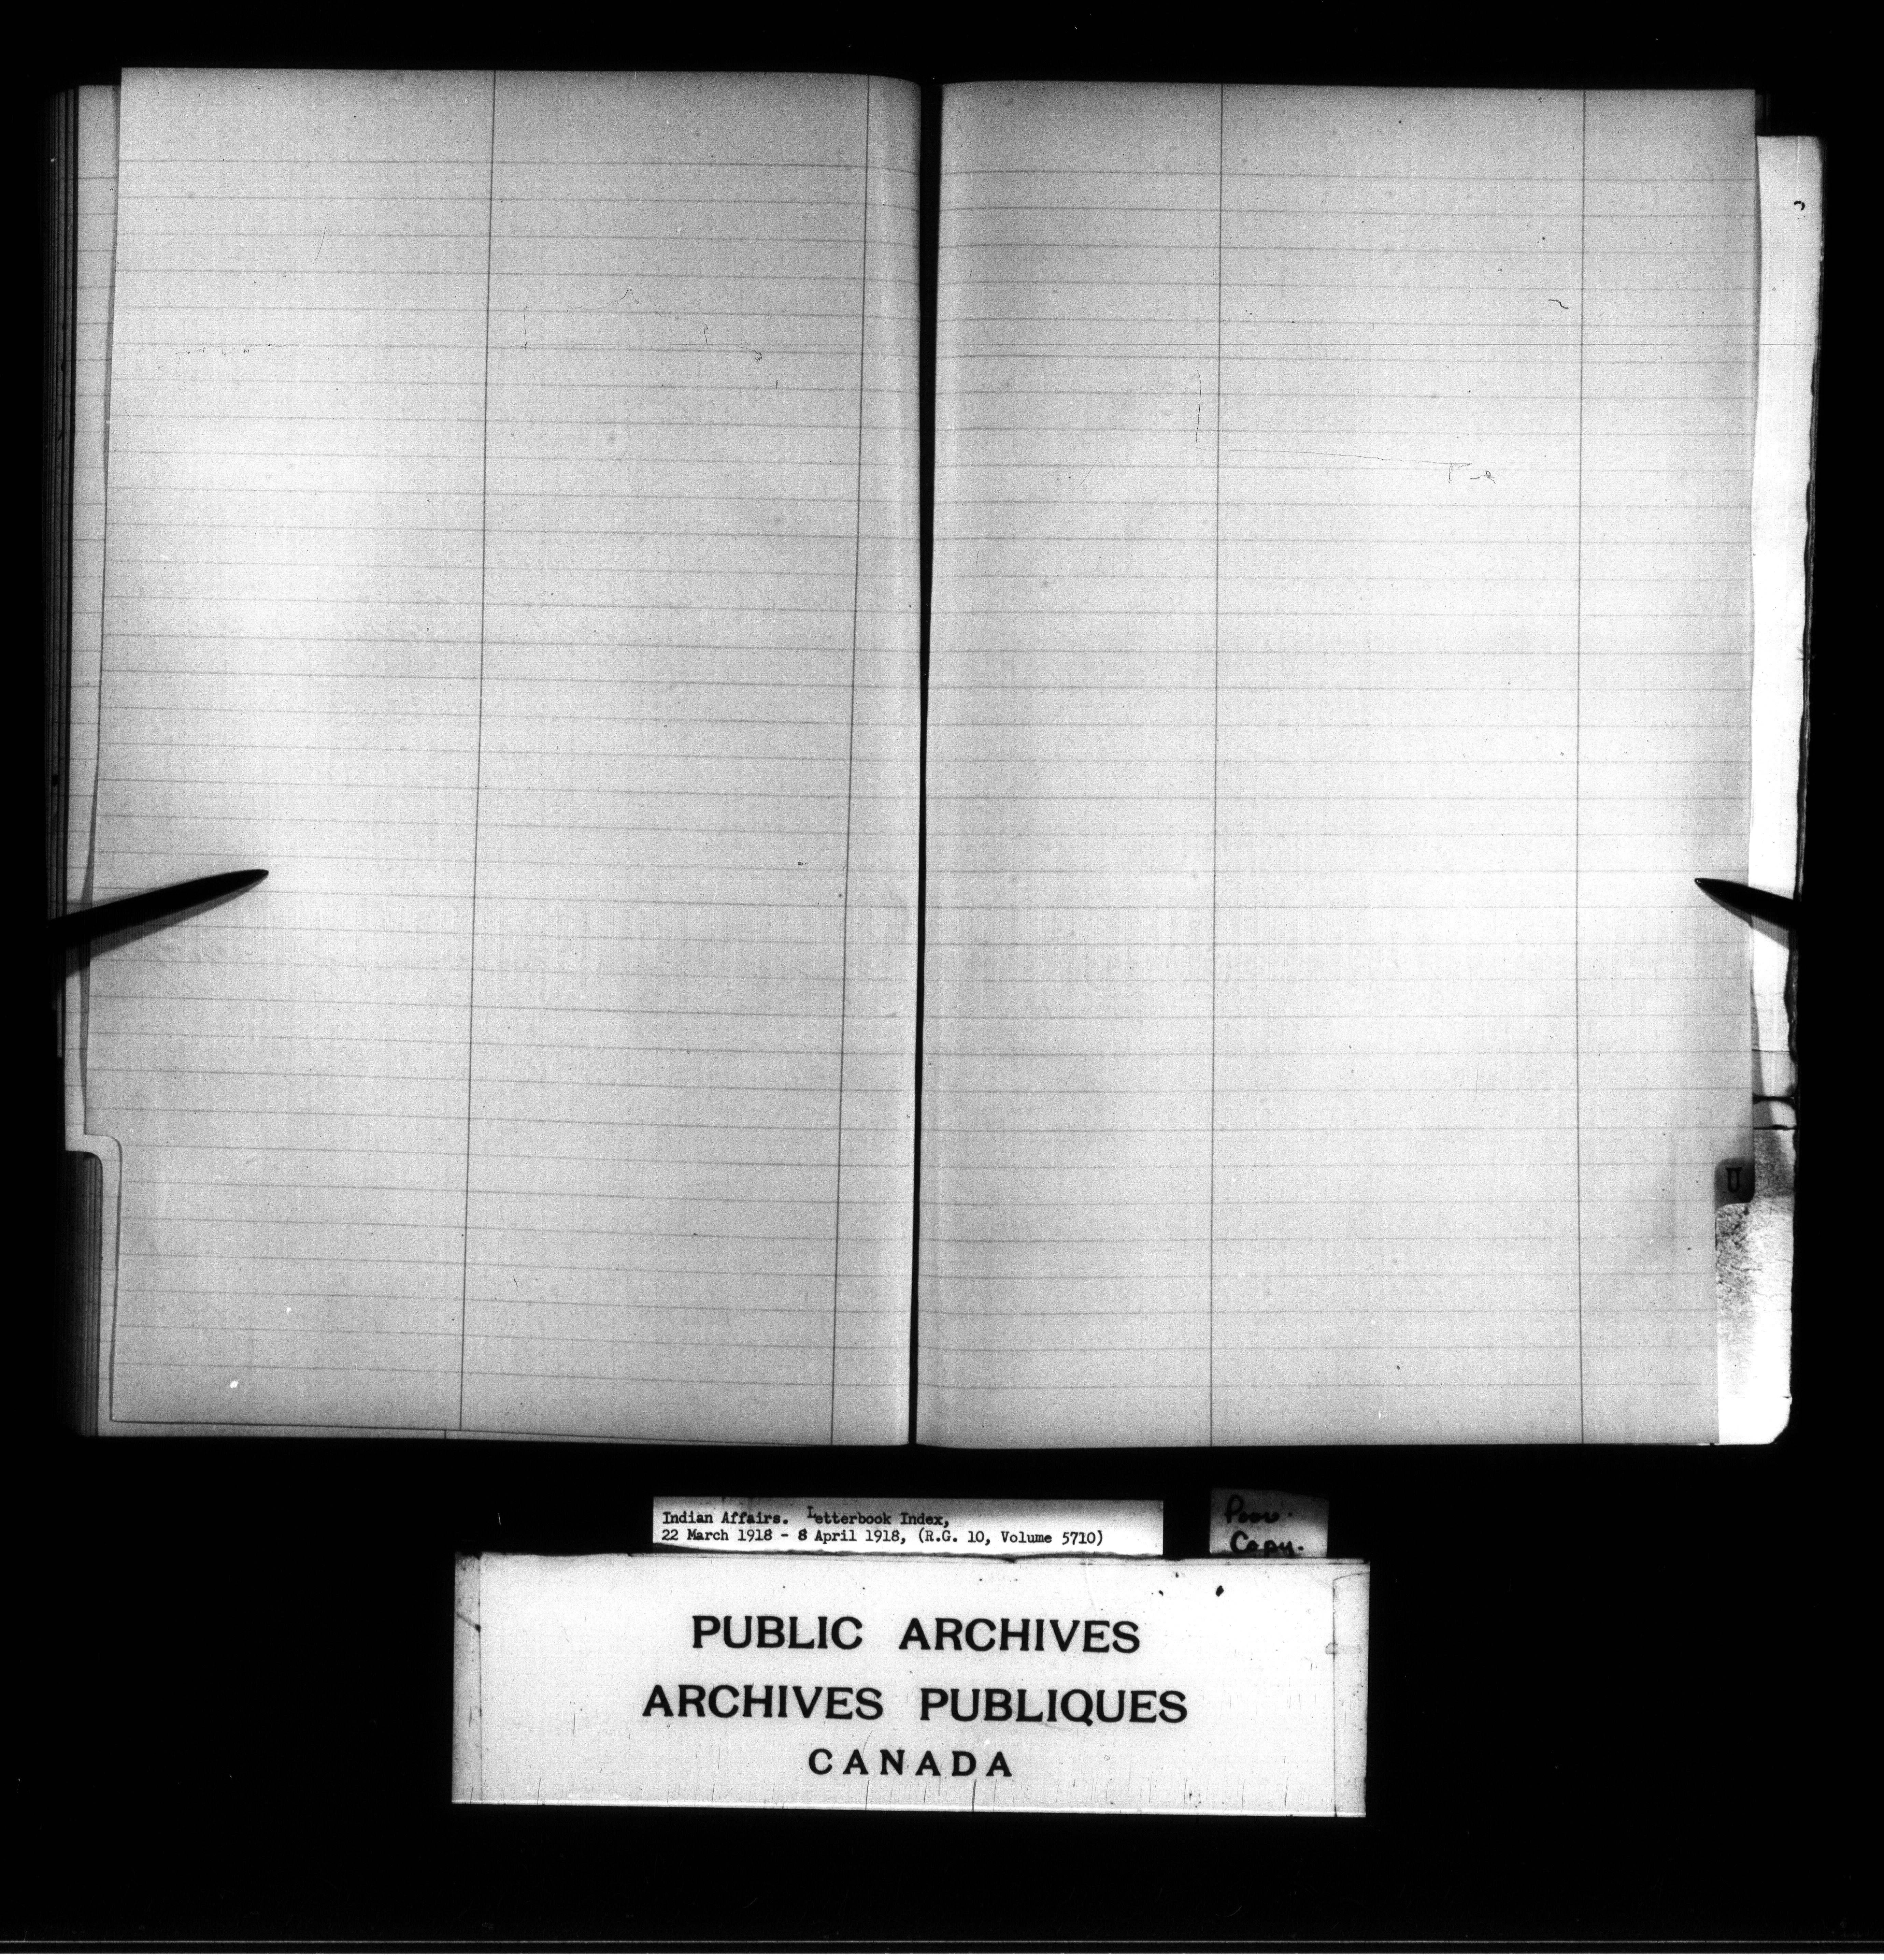 U
Indian Affairs. Letterbook Index,
22 March 1918 - 8 April 1918, (R.G. 10, Volume 5710)
Poor.
Copy.
PUBLIC ARCHIVES
ARCHIVES PUBLIQUES
CANADA